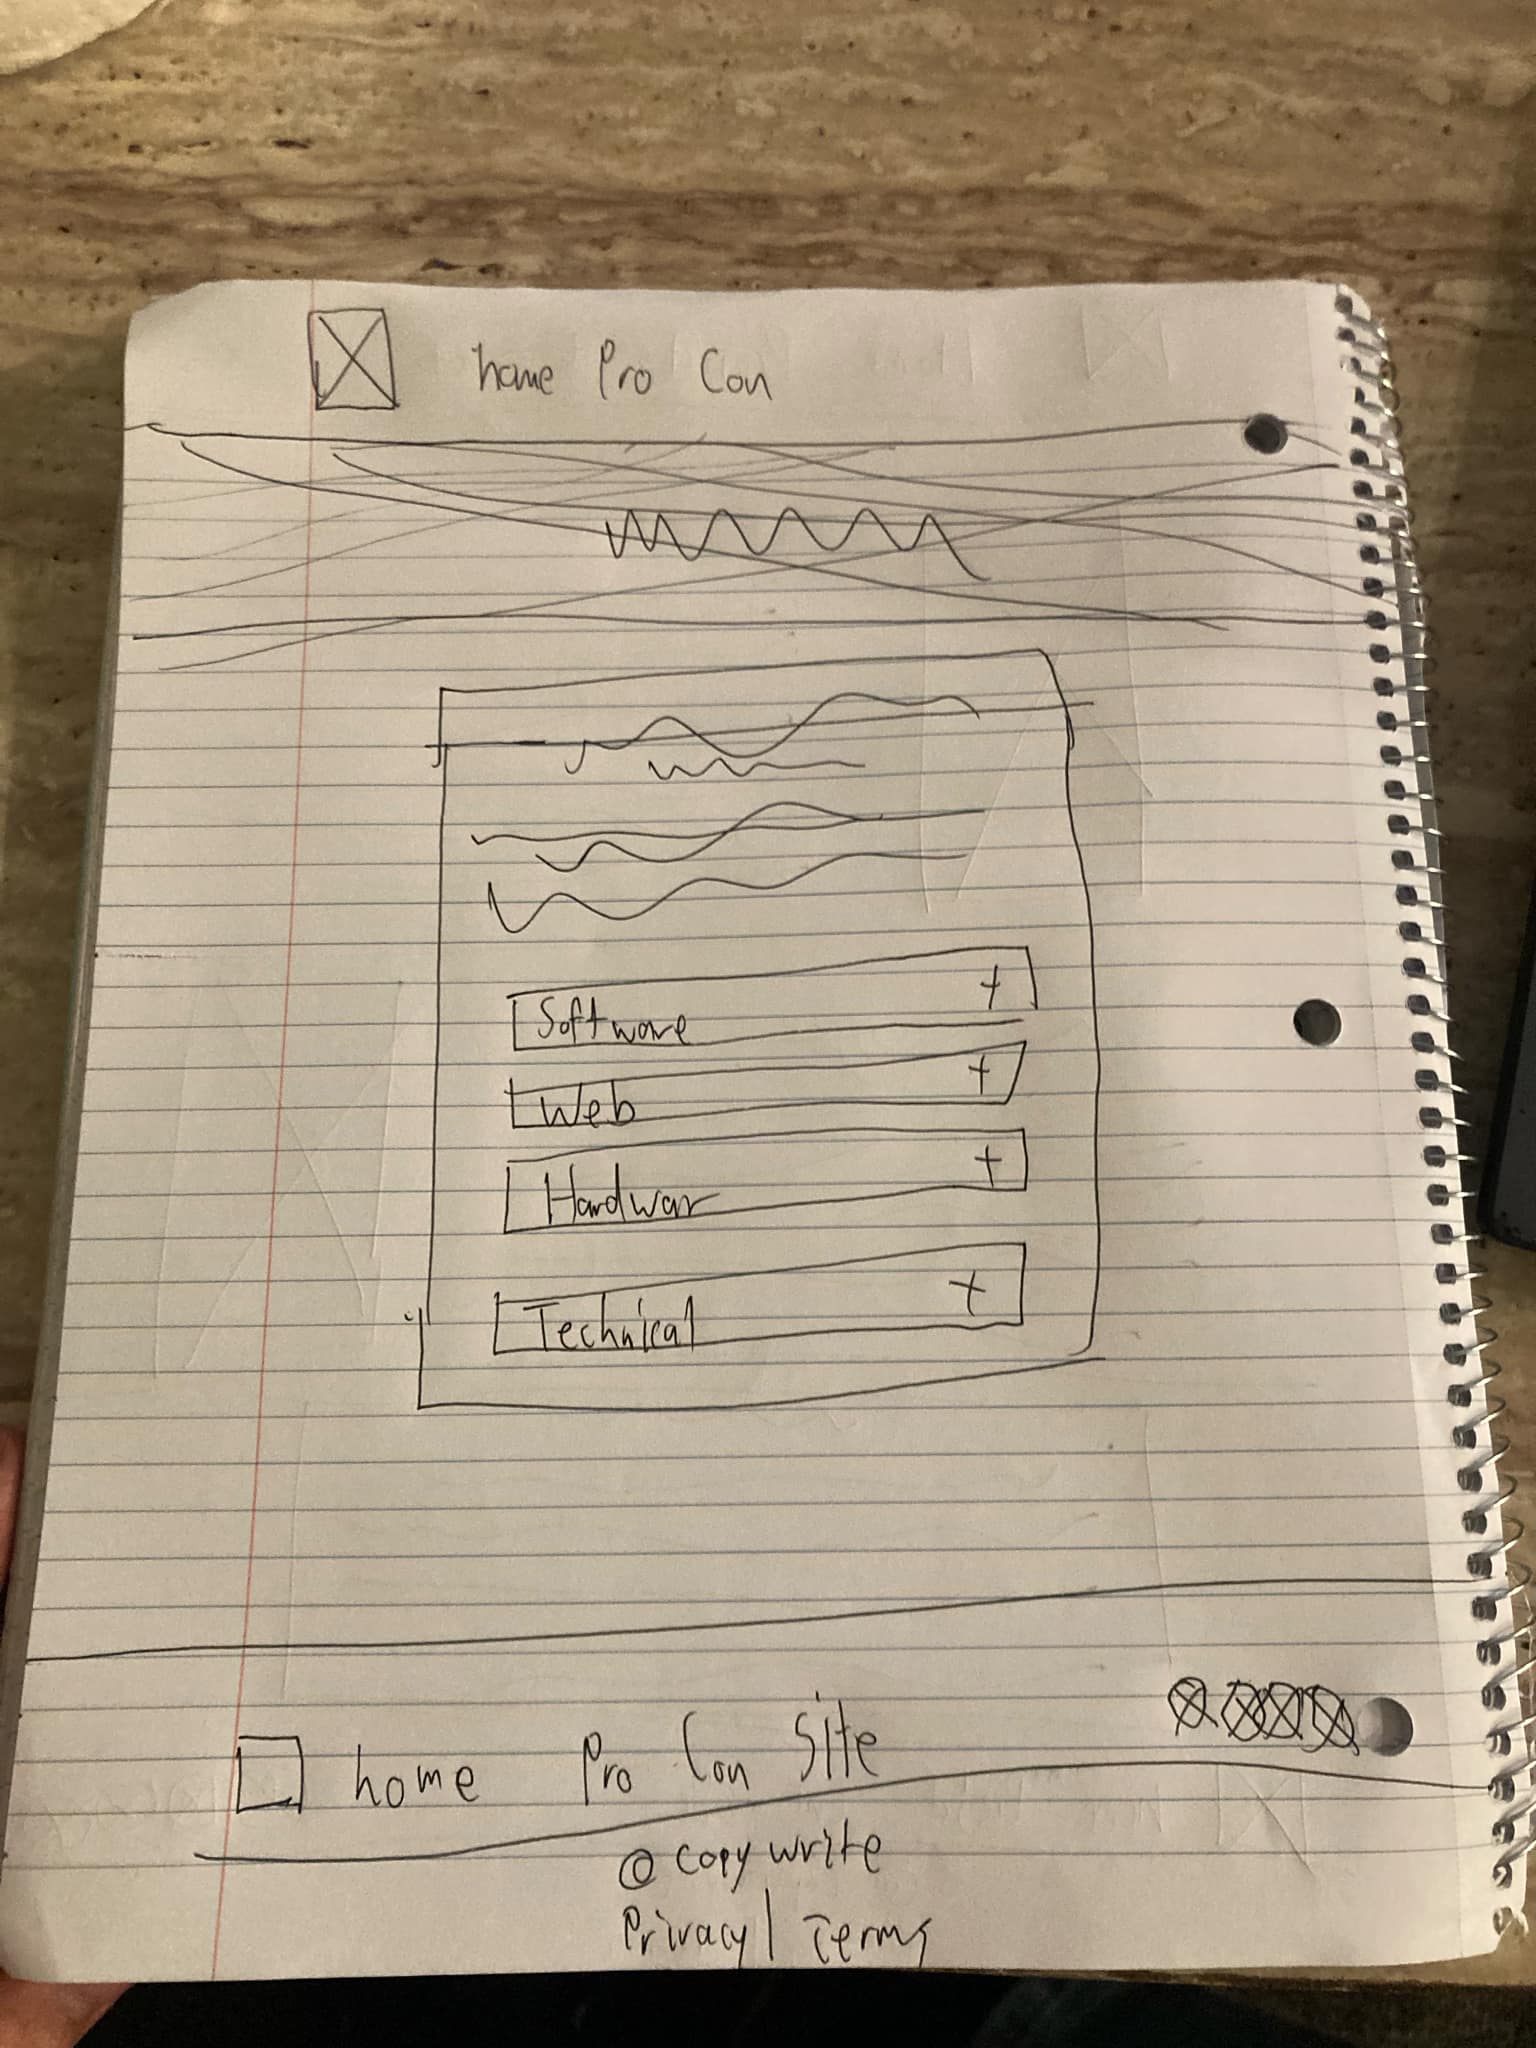 home Pro Con
Software +
Web +
Hardwar +
Technical +
home Pro Con Site
@ copy write
Privacy | Terms